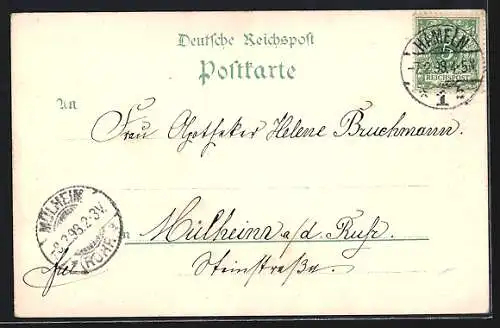 Deutsche Reichspost
Postkarte
5
REICHSPOST
HAMELN
-7.2.98.4-5N
1
An
Frau Apotheker Helene Bruchmann.
MÜLHEIM
-8.2.98.2-3V.
(RUHR.)
in
Mülheim a/d. Ruhr.
Steinstraße.
frei